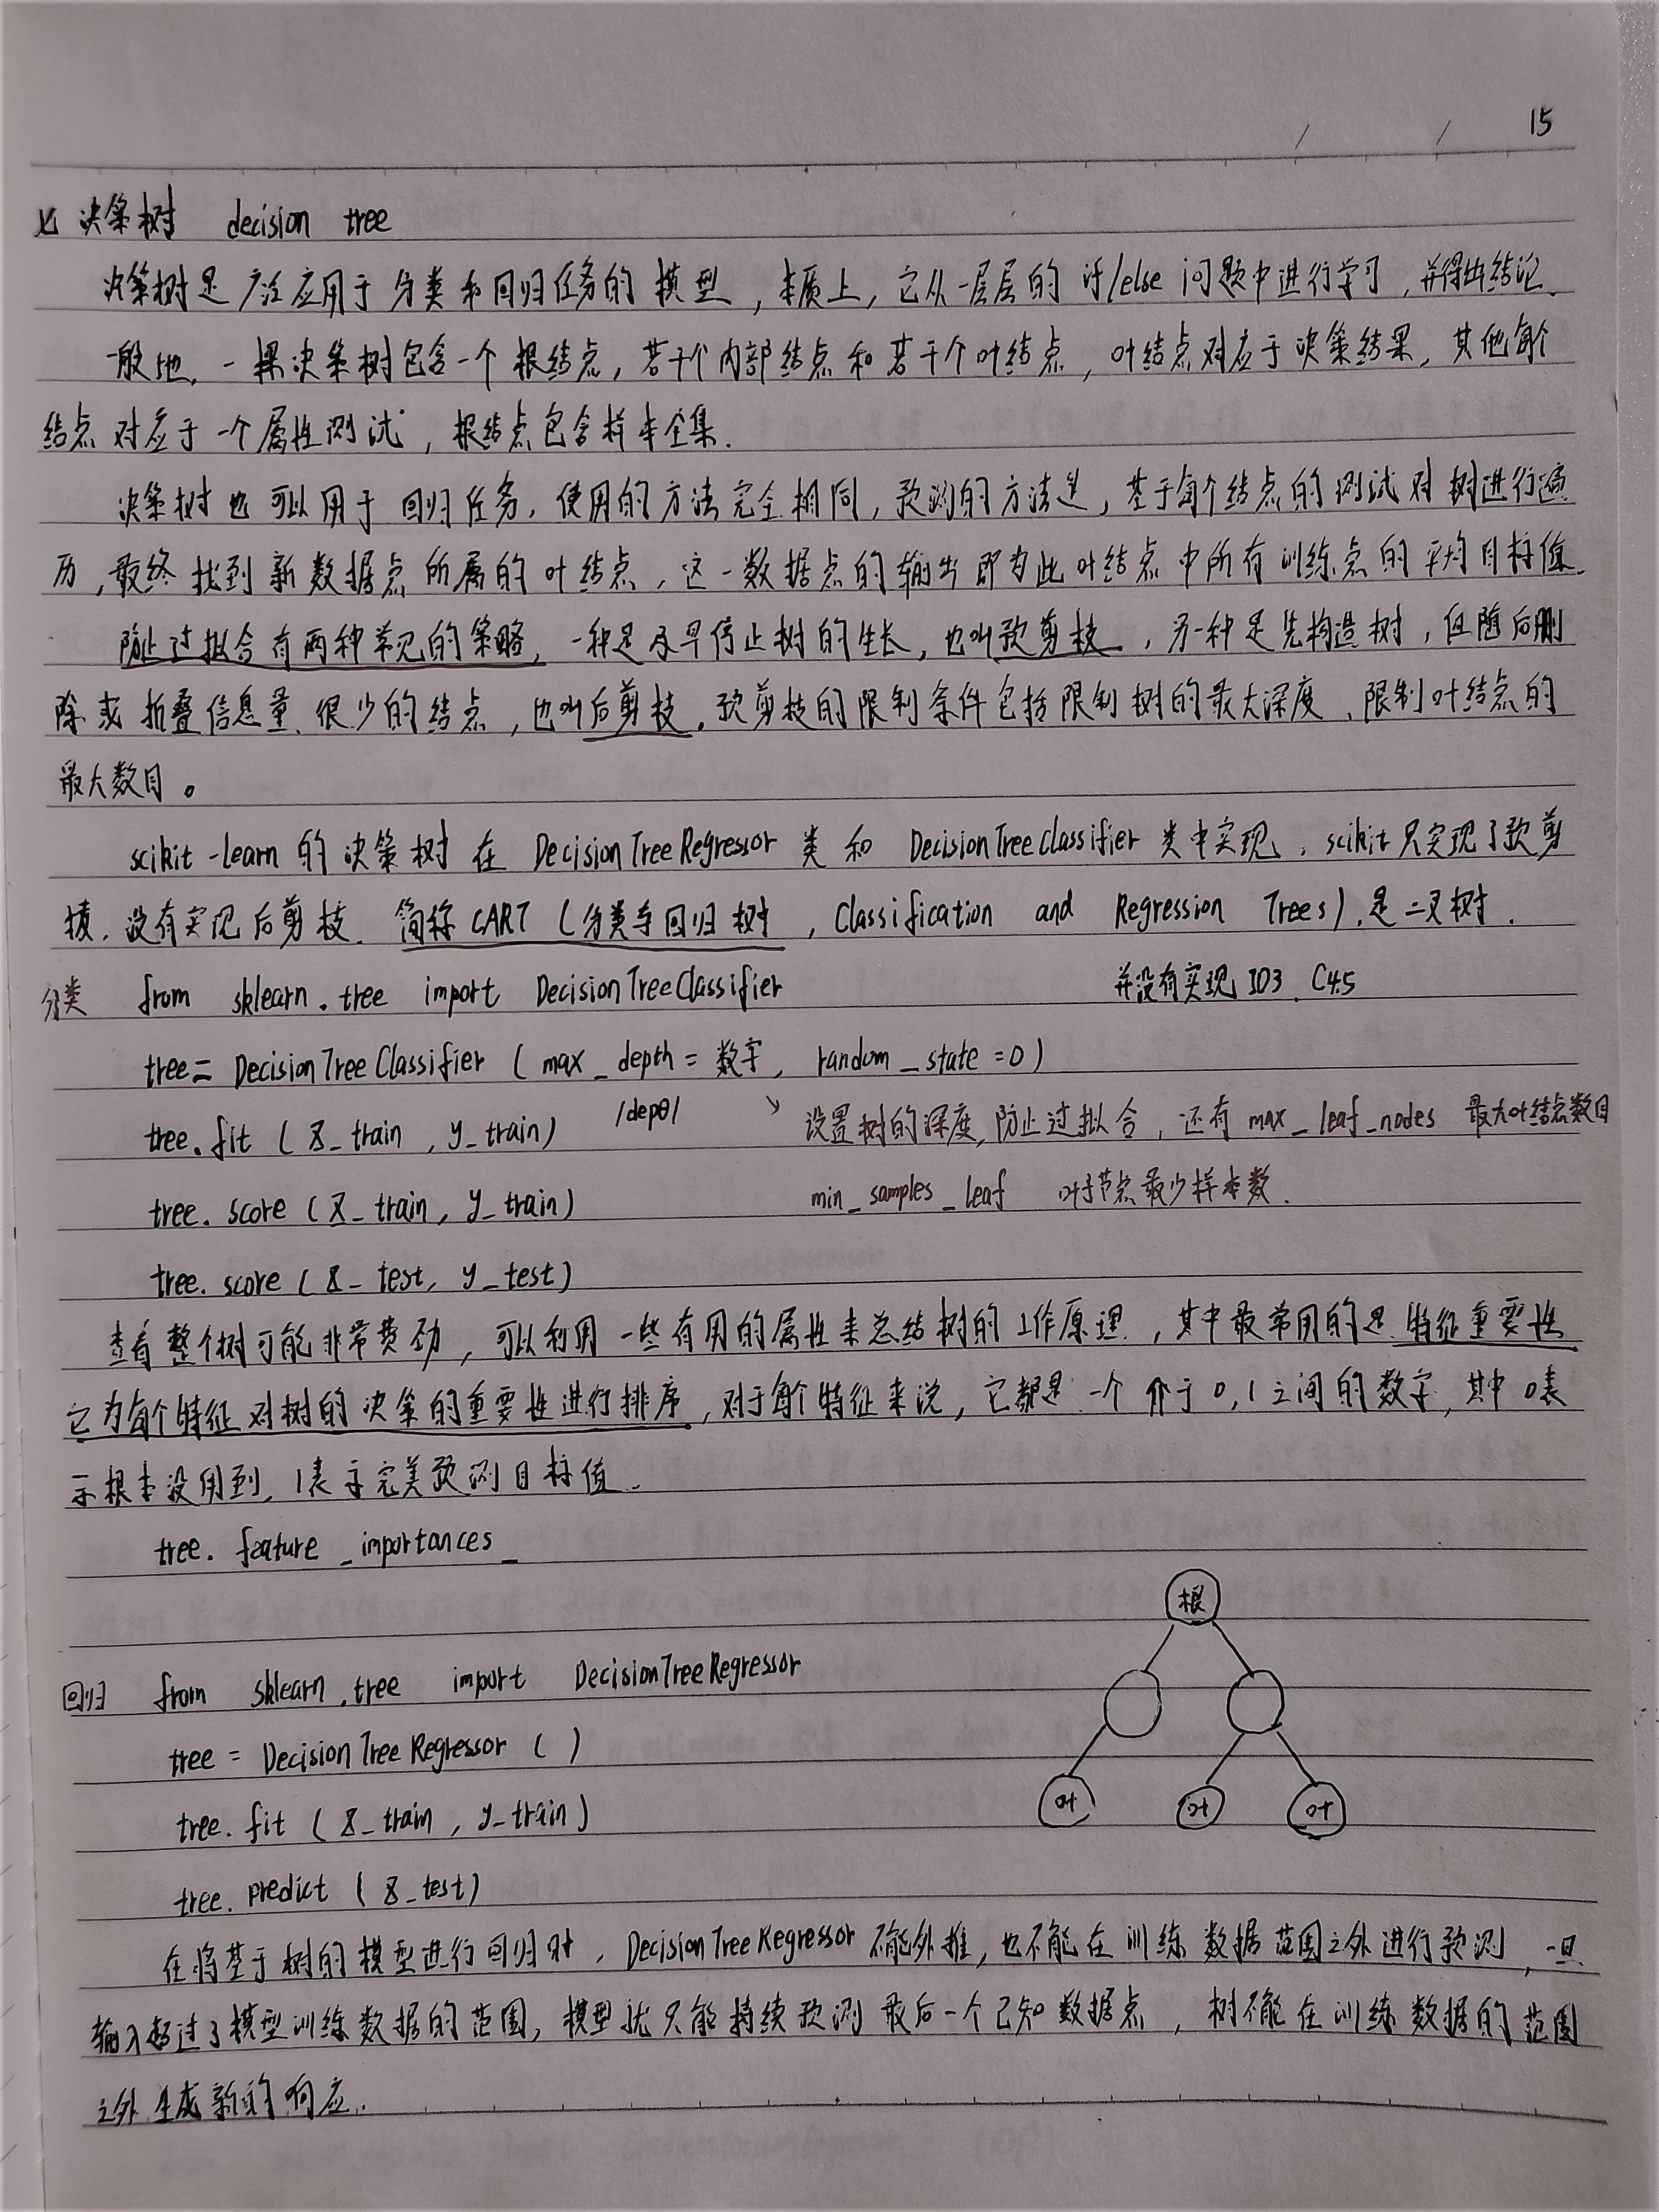 15
七 决策树 decision tree
决策树是广泛应用于分类和回归任务的模型，本质上，它从一层层的if/else问题中进行学习，并得出结论.
一般地，一棵决策树包含一个根结点，若干个内部结点和若干个叶结点，叶结点对应于决策结果，其他每个
结点对应于一个属性测试，根结点包含样本全集.
决策树也可以用于回归任务，使用的方法完全相同，预测的方法是，基于每个结点的测试对树进行遍
历，最终找到新数据点所属的叶结点，这一数据点的输出即为此叶结点中所有训练点的平均目标值.
防止过拟合有两种常见的策略，一种是尽早停止树的生长，也叫预剪枝，另一种是先构造树，但随后删
除或折叠信息量很少的结点，也叫后剪枝，预剪枝的限制条件包括限制树的最大深度、限制叶结点的
最大数目。
scikit-learn的决策树在DecisionTreeRegressor类和DecisionTreeClassifier类中实现，scikit只实现了预剪
枝，没有实现后剪枝. 简称CART（分类与回归树，Classification and Regression Trees），是二叉树.
分类 from sklearn.tree import DecisionTreeClassifier 并没有实现ID3、C4.5
tree = DecisionTreeClassifier (max_depth = 数字, random_state = 0)
tree.fit (X_train, y_train) /depθ/ ↘ 设置树的深度,防止过拟合，还有max_leaf_nodes 最大叶结点数目
tree.score (X_train, y_train) min_samples_leaf 叶子节点最少样本数.
tree.score (X_test, y_test)
查看整个树可能非常费劲，可以利用一些有用的属性来总结树的工作原理，其中最常用的是特征重要性
它为每个特征对树的决策的重要性进行排序，对于每个特征来说，它都是一个介于0,1之间的数字，其中0表
示根本没用到，1表示完美预测目标值.
tree.feature_importances_
根
回归 from sklearn.tree import DecisionTreeRegressor
tree = DecisionTreeRegressor ( )
tree.fit (X_train, y_train)
叶 叶 叶
tree.predict (X_test)
在将基于树的模型进行回归时，DecisionTreeRegressor不能外推，也不能在训练数据范围之外进行预测，一旦
输入超过了模型训练数据的范围，模型就只能持续预测最后一个已知数据点，树不能在训练数据的范围
之外生成新的响应.